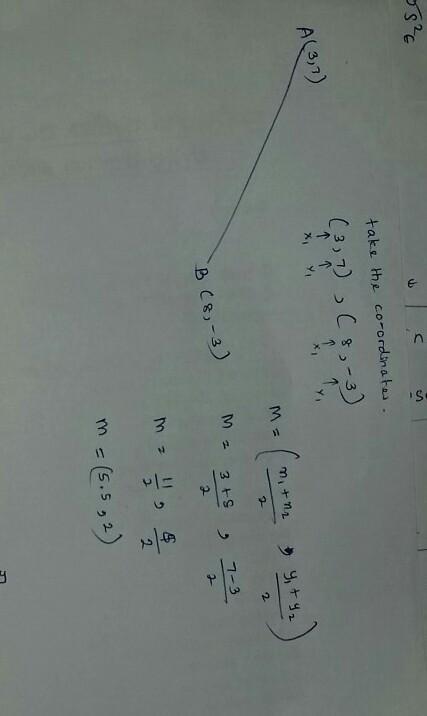 take the co-ordinates.
(3,7) , (8,-3)
↑ ↑ ↑ ↑
x₁ y₁ x₁ y₁
A(3,7)
B (8,-3)
M = (x₁+x₂/2 , y₁+y₂/2)
M = 3+8/2 , 7-3/2
M = 11/2 , 4/2
M = (5.5,2)